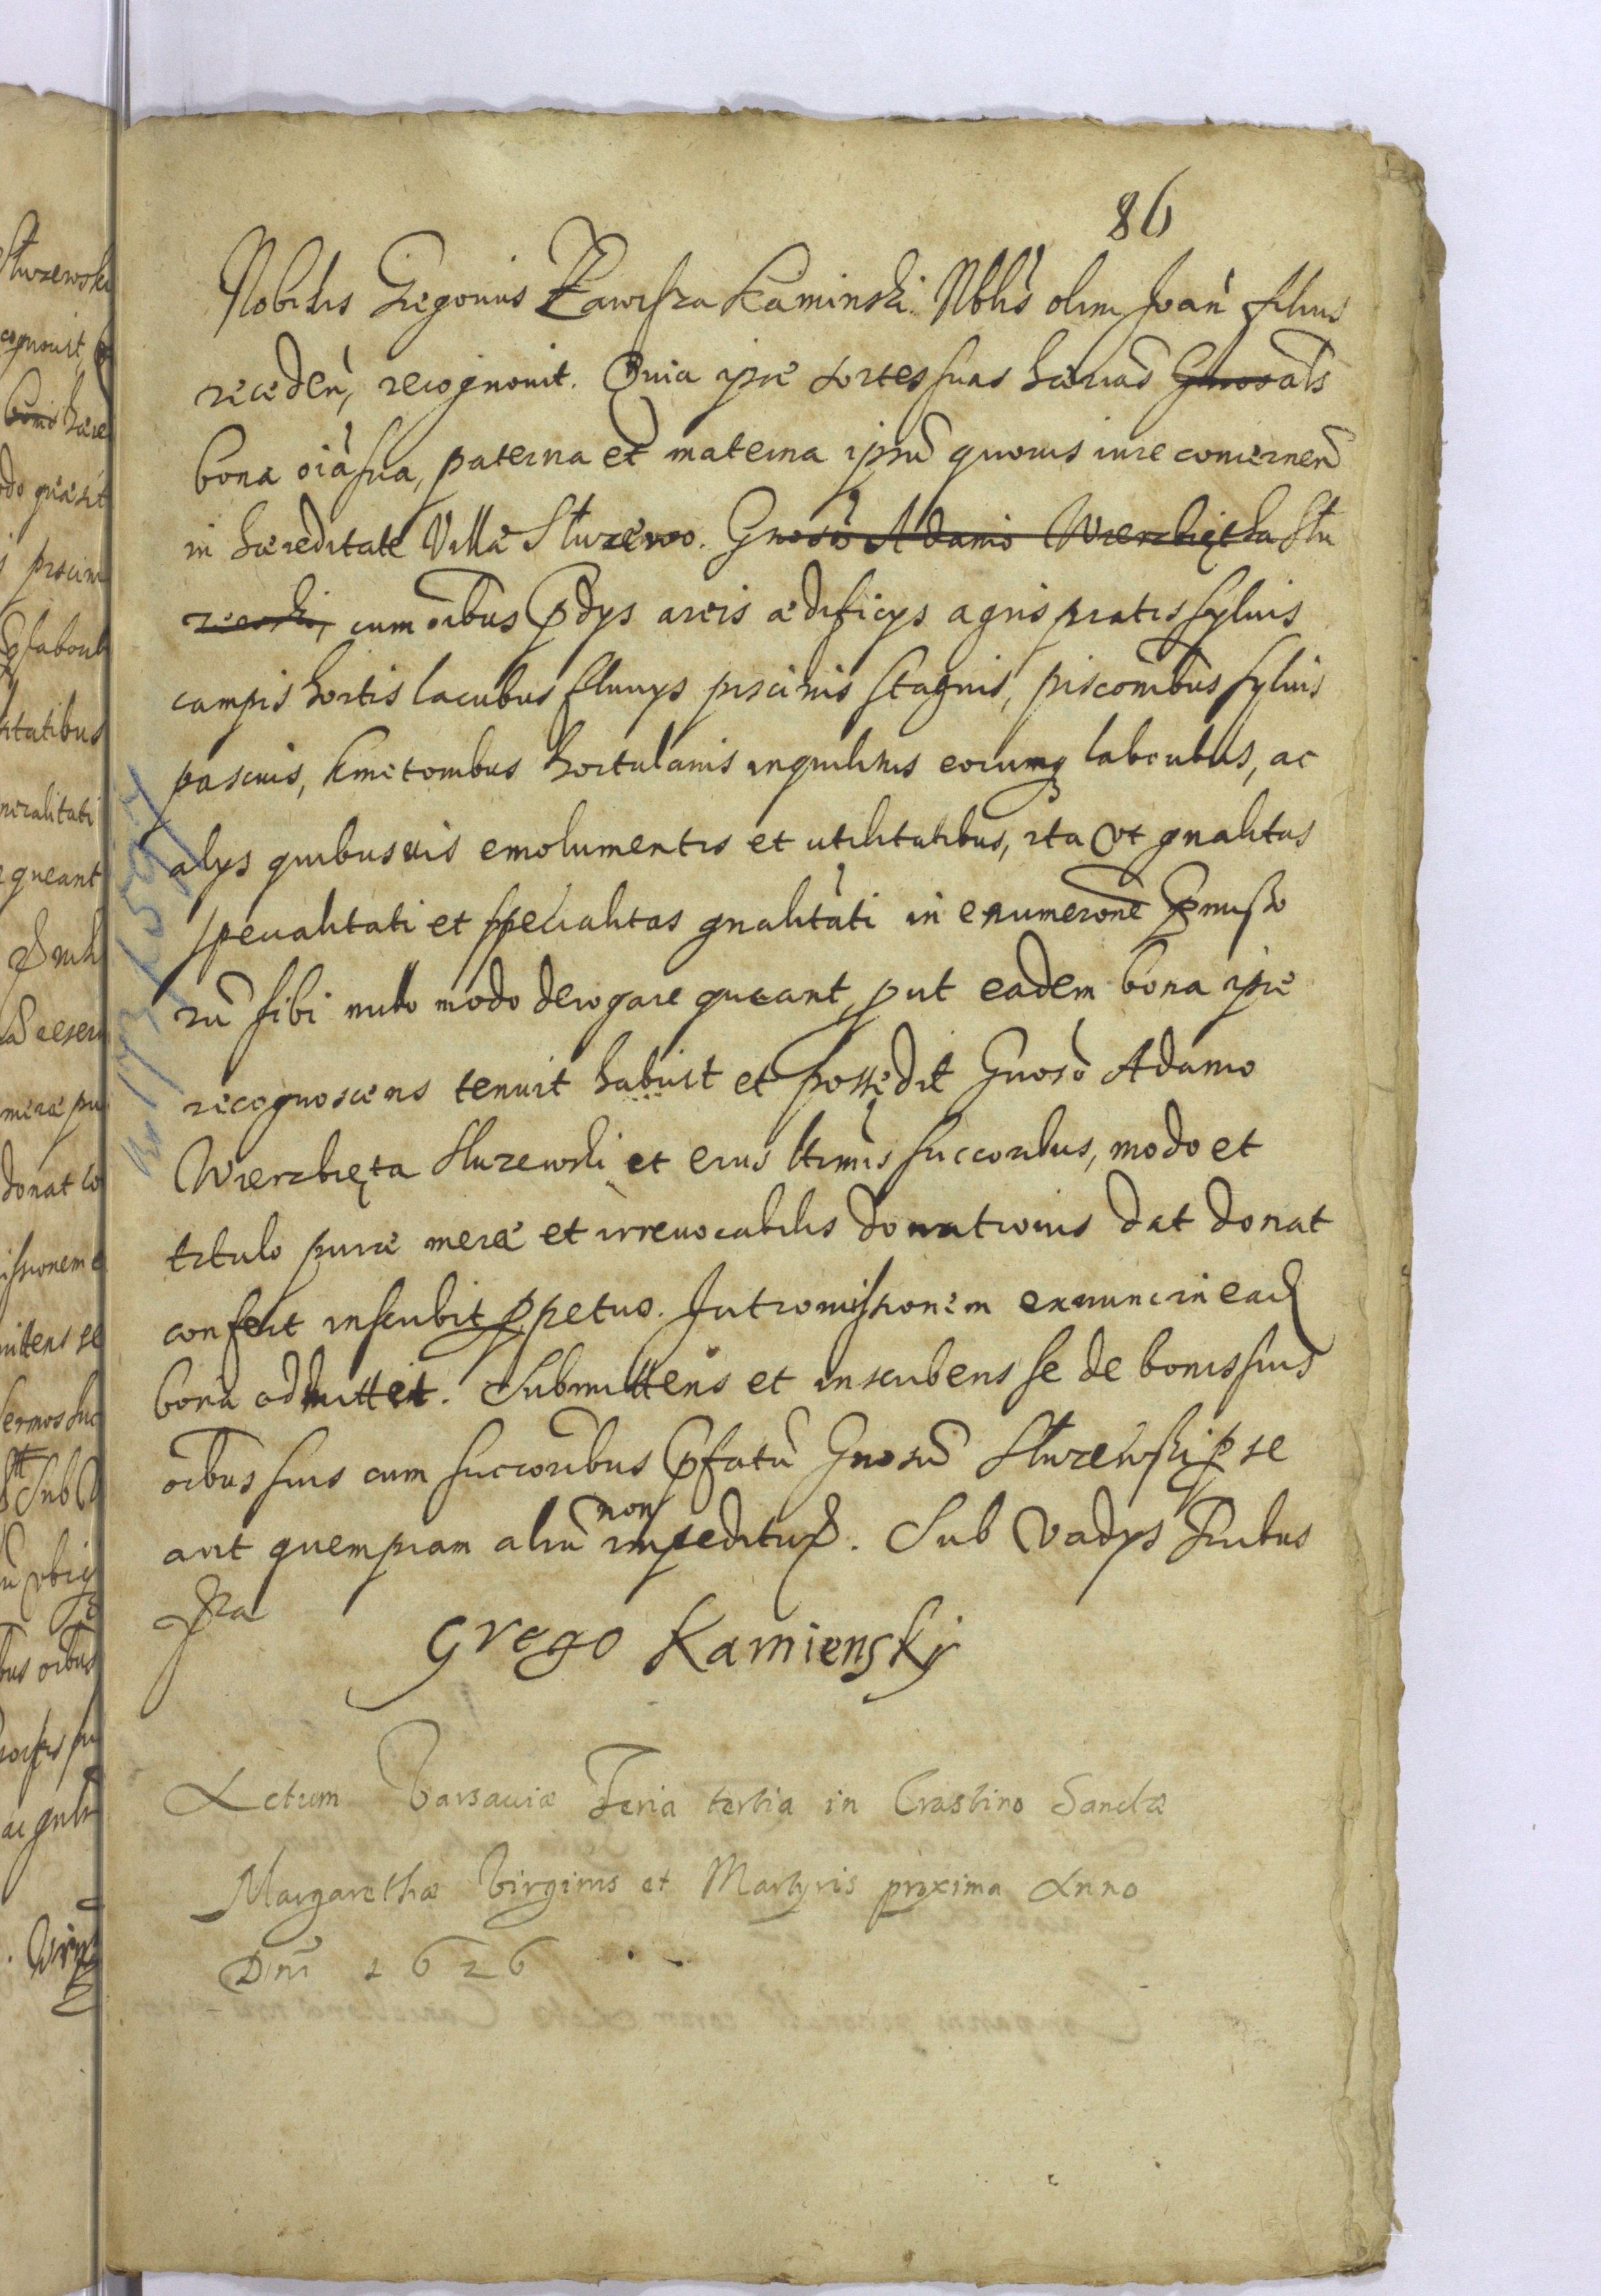 86
Nobilis Gregorius Zawisza Kaminski Nblis olim Joan filius
recedens, recognovit. Quia ipse sortes suas haerias Gnoso als
bona oia sua, paterna et materna ipsum quovis iure concernen
in haereditate Villae Sluzewo. Gnoso Adamo Wierzbięta Slu
zewski, cum oibus Pdys areis aedificys agris pratis sylvis
campis hortis lacubus fluvys piscinis stagnis, pisconibus sylvis
pascuis, kmetonibus hortulanis inquilinis eorumq laboribus, ac
alys quibusvis emolumentis et utilitatibus, ita vt gnalitas
specialitati et specialitas gnalitati in enumerone Pmisso
rum sibi nullo modo derogare queant, put eadem bona ipse
recognoscens tenuit habuit et possedit Gnoso Adamo
Wierzbięta Sluzewski et eius ltimis succoribus, modo et
titulo purae merae et irrevocabilis donationis dat donat
confert inscribit ppetuo. Intromissionem exnunc in ead
bona admittit. Submittens et inscribens se de bonis suis
oibus suis cum succoribus Pfatum Gnosum Sluzewski p se
aut quempiam alium non impeditur. Sub Vadys
Grego Kamiensky
Actum Varsaviae Feria tertia in Crastino Sanctae
Margarethae Virginis et Martyris proxima Anno
Dni 1626